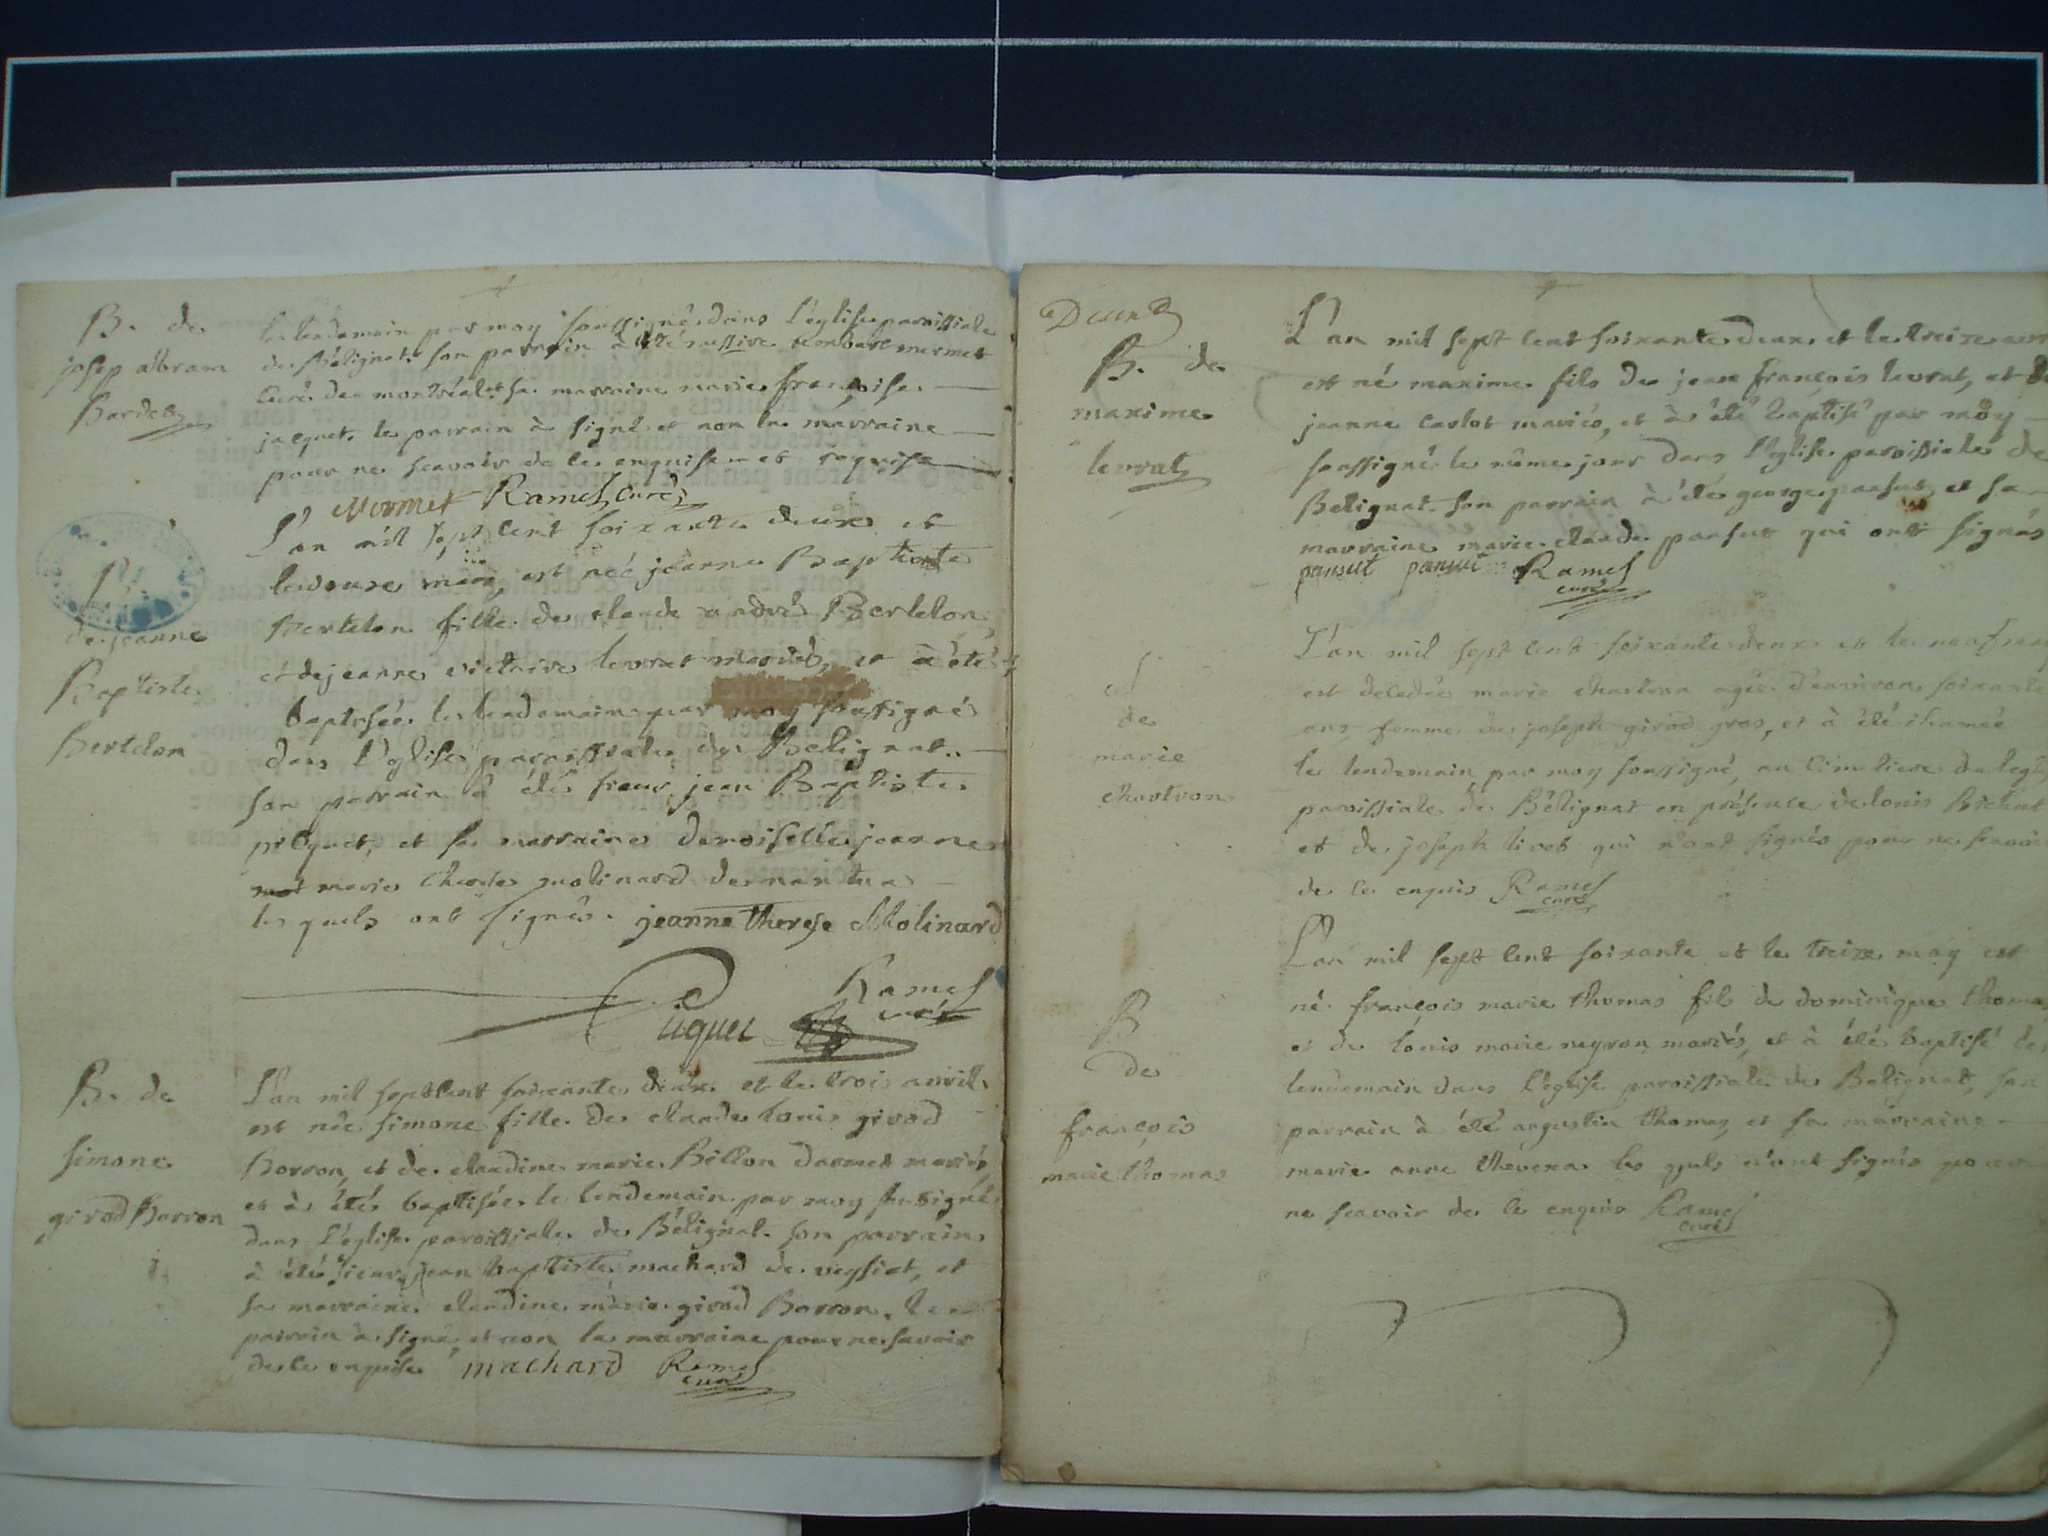 B. de
josep abram
Bardet
le lendemain par moy soussigné dans l'église paroissiale
de Bélignat son parrain à été messire mermet
curé de montréal et sa marraine marie françoise
jacquet, le parrain à signé et non la marraine
pour ne scavoir de ce enquise et requise
Mermet Ramel curé
B.
de jeanne
Baptiste
Bertelon
L'an mil sept cent soixante deux et
le douze mars, est née jeanne Baptiste
Bertelon fille de claude andré Bertelon,
et de jeanne victoire levrat mariés, et à été
baptisée le lendemain par moy soussigné
dans l'église paroissiale de Belignat..
son parrain à été sieur jean Baptiste
piquet, et sa marraine demoiselle jeanne
marie molinard de nantua
les quels ont signés. jeanne therese Molinard
Ramel
curé
Piquet
B. de
simone
girod Borron
L'an mil sept cent soixante deux et le trois avril
est née simone fille de claude louis girod
Borron, et de claudine marie Billon darmet mariés,
et à été baptisée le lendemain par moy soussigné
dans l'église paroissiale de Bélignat son parrain
à été sieur jean baptiste machard de veysiat, et
sa marraine claudine marie girod Borron, le
parrain à signé, et non la marraine pour ne savoir
de ce enquise machard Ramel
curé
Deux
B. de
maxime
levrat
L'an mil sept cent soixante deux et le treize avr
est né maxime fils de jean françois levrat, et de
jeanne carlot mariés, et à été baptisé par moy
soussigné le même jour dans l'église paroissiale de
Belignat son parrain à été george pansut et sa
marraine marie claude pansut qui ont signés
pansut pansut Ramel
curé
S
de
marie
chartron
L'an mil sept cent soixante deux et le neuf may
est decedée marie chartron agée d'environ soixante
ans femme de joseph girod gros, et à été inhumée
le lendemain par moy soussigné, au cimetiere de l'eglise
paroissiale de Bélignat en présence de louis Bichat
et de joseph livet qui n'ont signés pour ne scavoir
de ce enquis Ramel
curé
B
de
françois
marie thomas
L'an mil sept cent soixante et le treize may est
né françois marie thomas fils de dominique thomas
et de louis marie neyron mariés, et à été baptisé le
lendemain dans l'église paroissiale de Belignat, son
parrain à été augustin thomas, et sa marraine
marie anne thévenin les quels n'ont signés pour
ne scavoir de ce enquis Ramel
curé